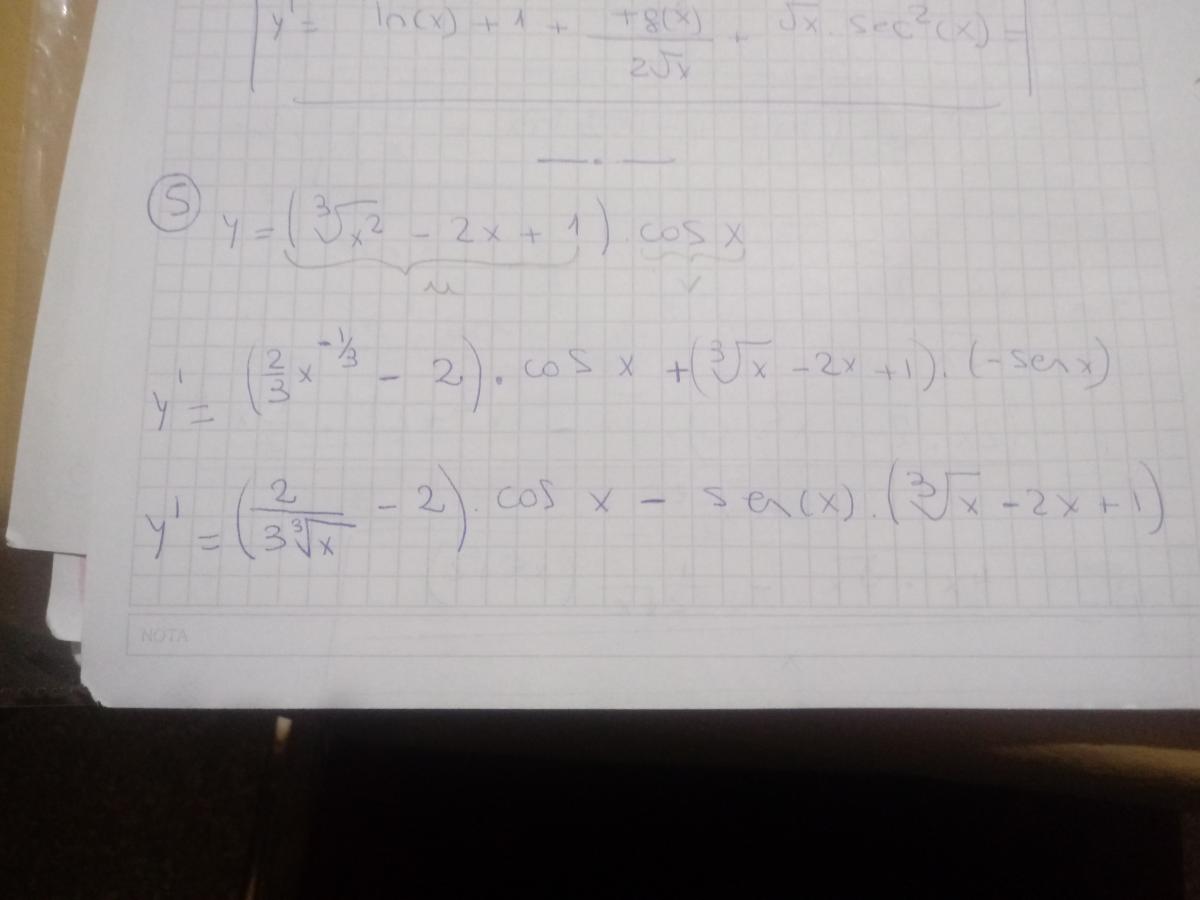 y' = ln(x) + 1 + tg(x)/2√x + √x · sec²(x) =
5 y = (∛x² - 2x + 1) · cos x
u v
y' = (2/3 x^-1/3 - 2) · cos x + (∛x - 2x + 1) · (-sen x)
y' = (2/3∛x - 2) · cos x - sen(x) · (∛x - 2x + 1)
NOTA